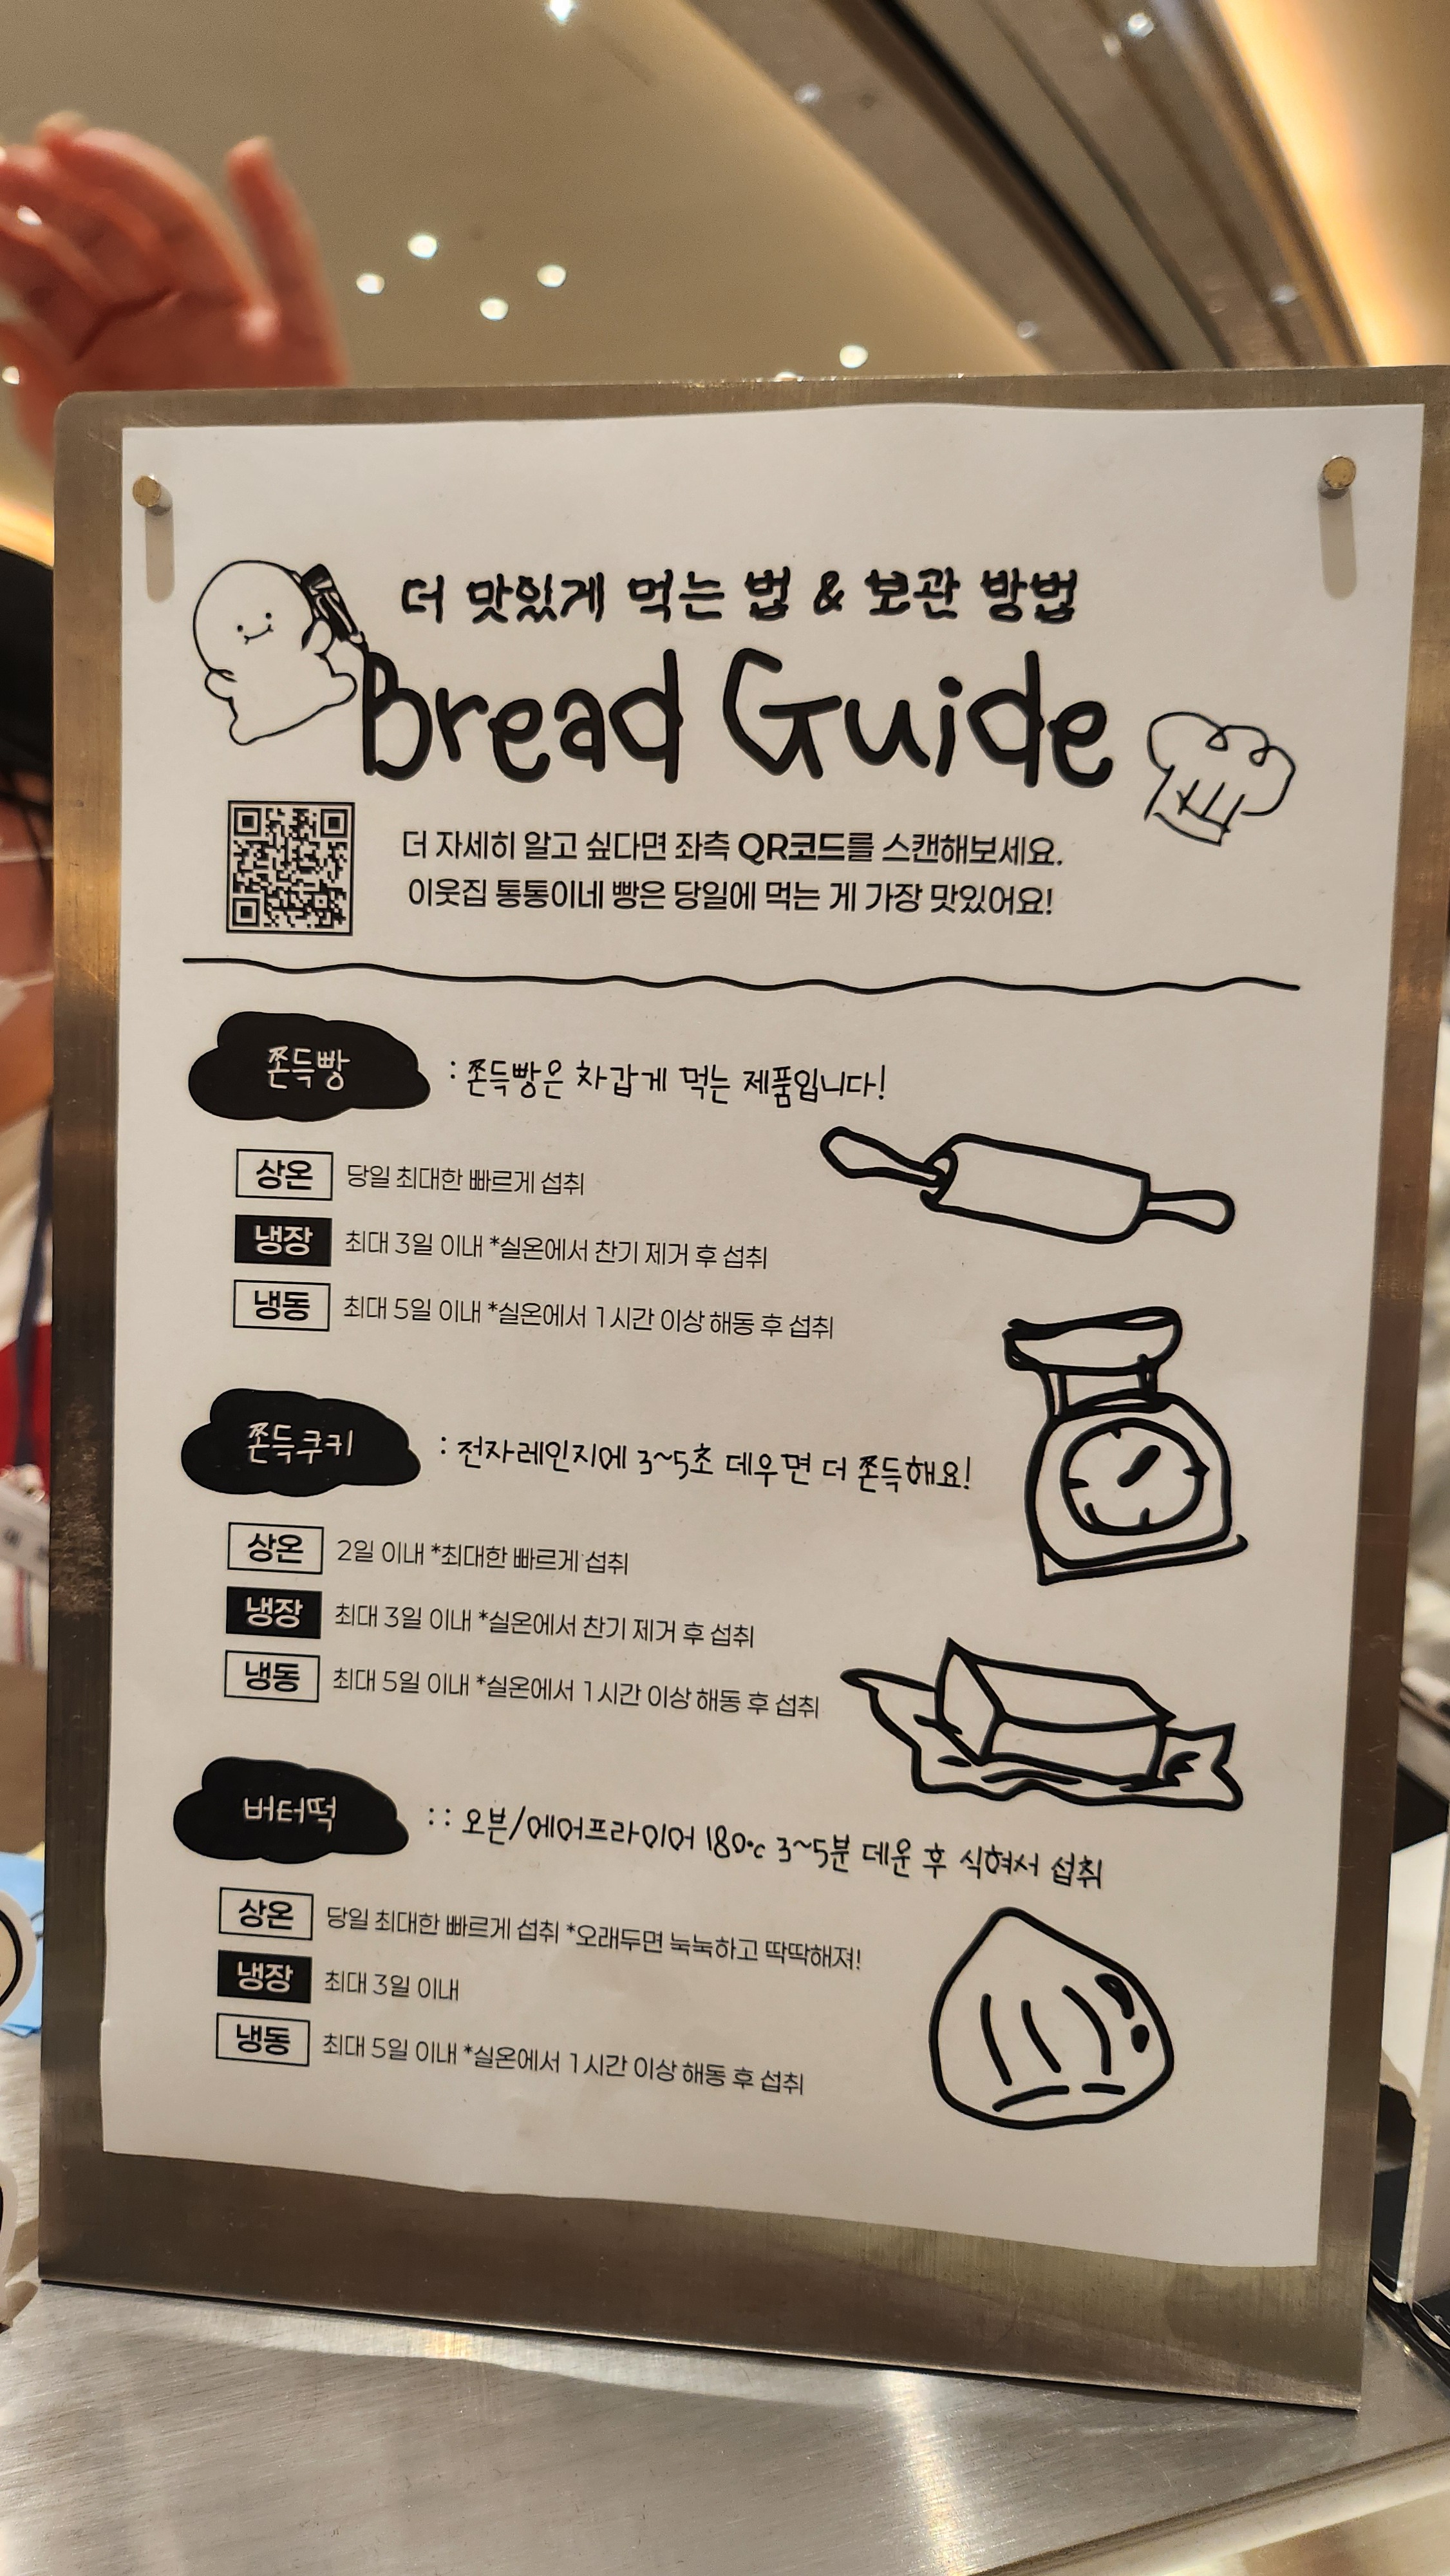 더 맛있게 먹는 법 & 보관 방법
Bread Guide
더 자세히 알고 싶다면 좌측 QR코드를 스캔해보세요.
이웃집 통통이네 빵은 당일에 먹는 게 가장 맛있어요!
쫀득빵 : 쫀득빵은 차갑게 먹는 제품입니다!
상온 당일 최대한 빠르게 섭취
냉장 최대 3일 이내 *실온에서 찬기 제거 후 섭취
냉동 최대 5일 이내 *실온에서 1시간 이상 해동 후 섭취
쫀득쿠키 : 전자레인지에 3~5초 데우면 더 쫀득해요!
상온 2일 이내 *최대한 빠르게 섭취
냉장 최대 3일 이내 *실온에서 찬기 제거 후 섭취
냉동 최대 5일 이내 *실온에서 1시간 이상 해동 후 섭취
버터떡 : : 오븐/에어프라이어 180℃ 3~5분 데운 후 식혀서 섭취
상온 당일 최대한 빠르게 섭취 *오래두면 눅눅하고 딱딱해져!
냉장 최대 3일 이내
냉동 최대 5일 이내 *실온에서 1시간 이상 해동 후 섭취